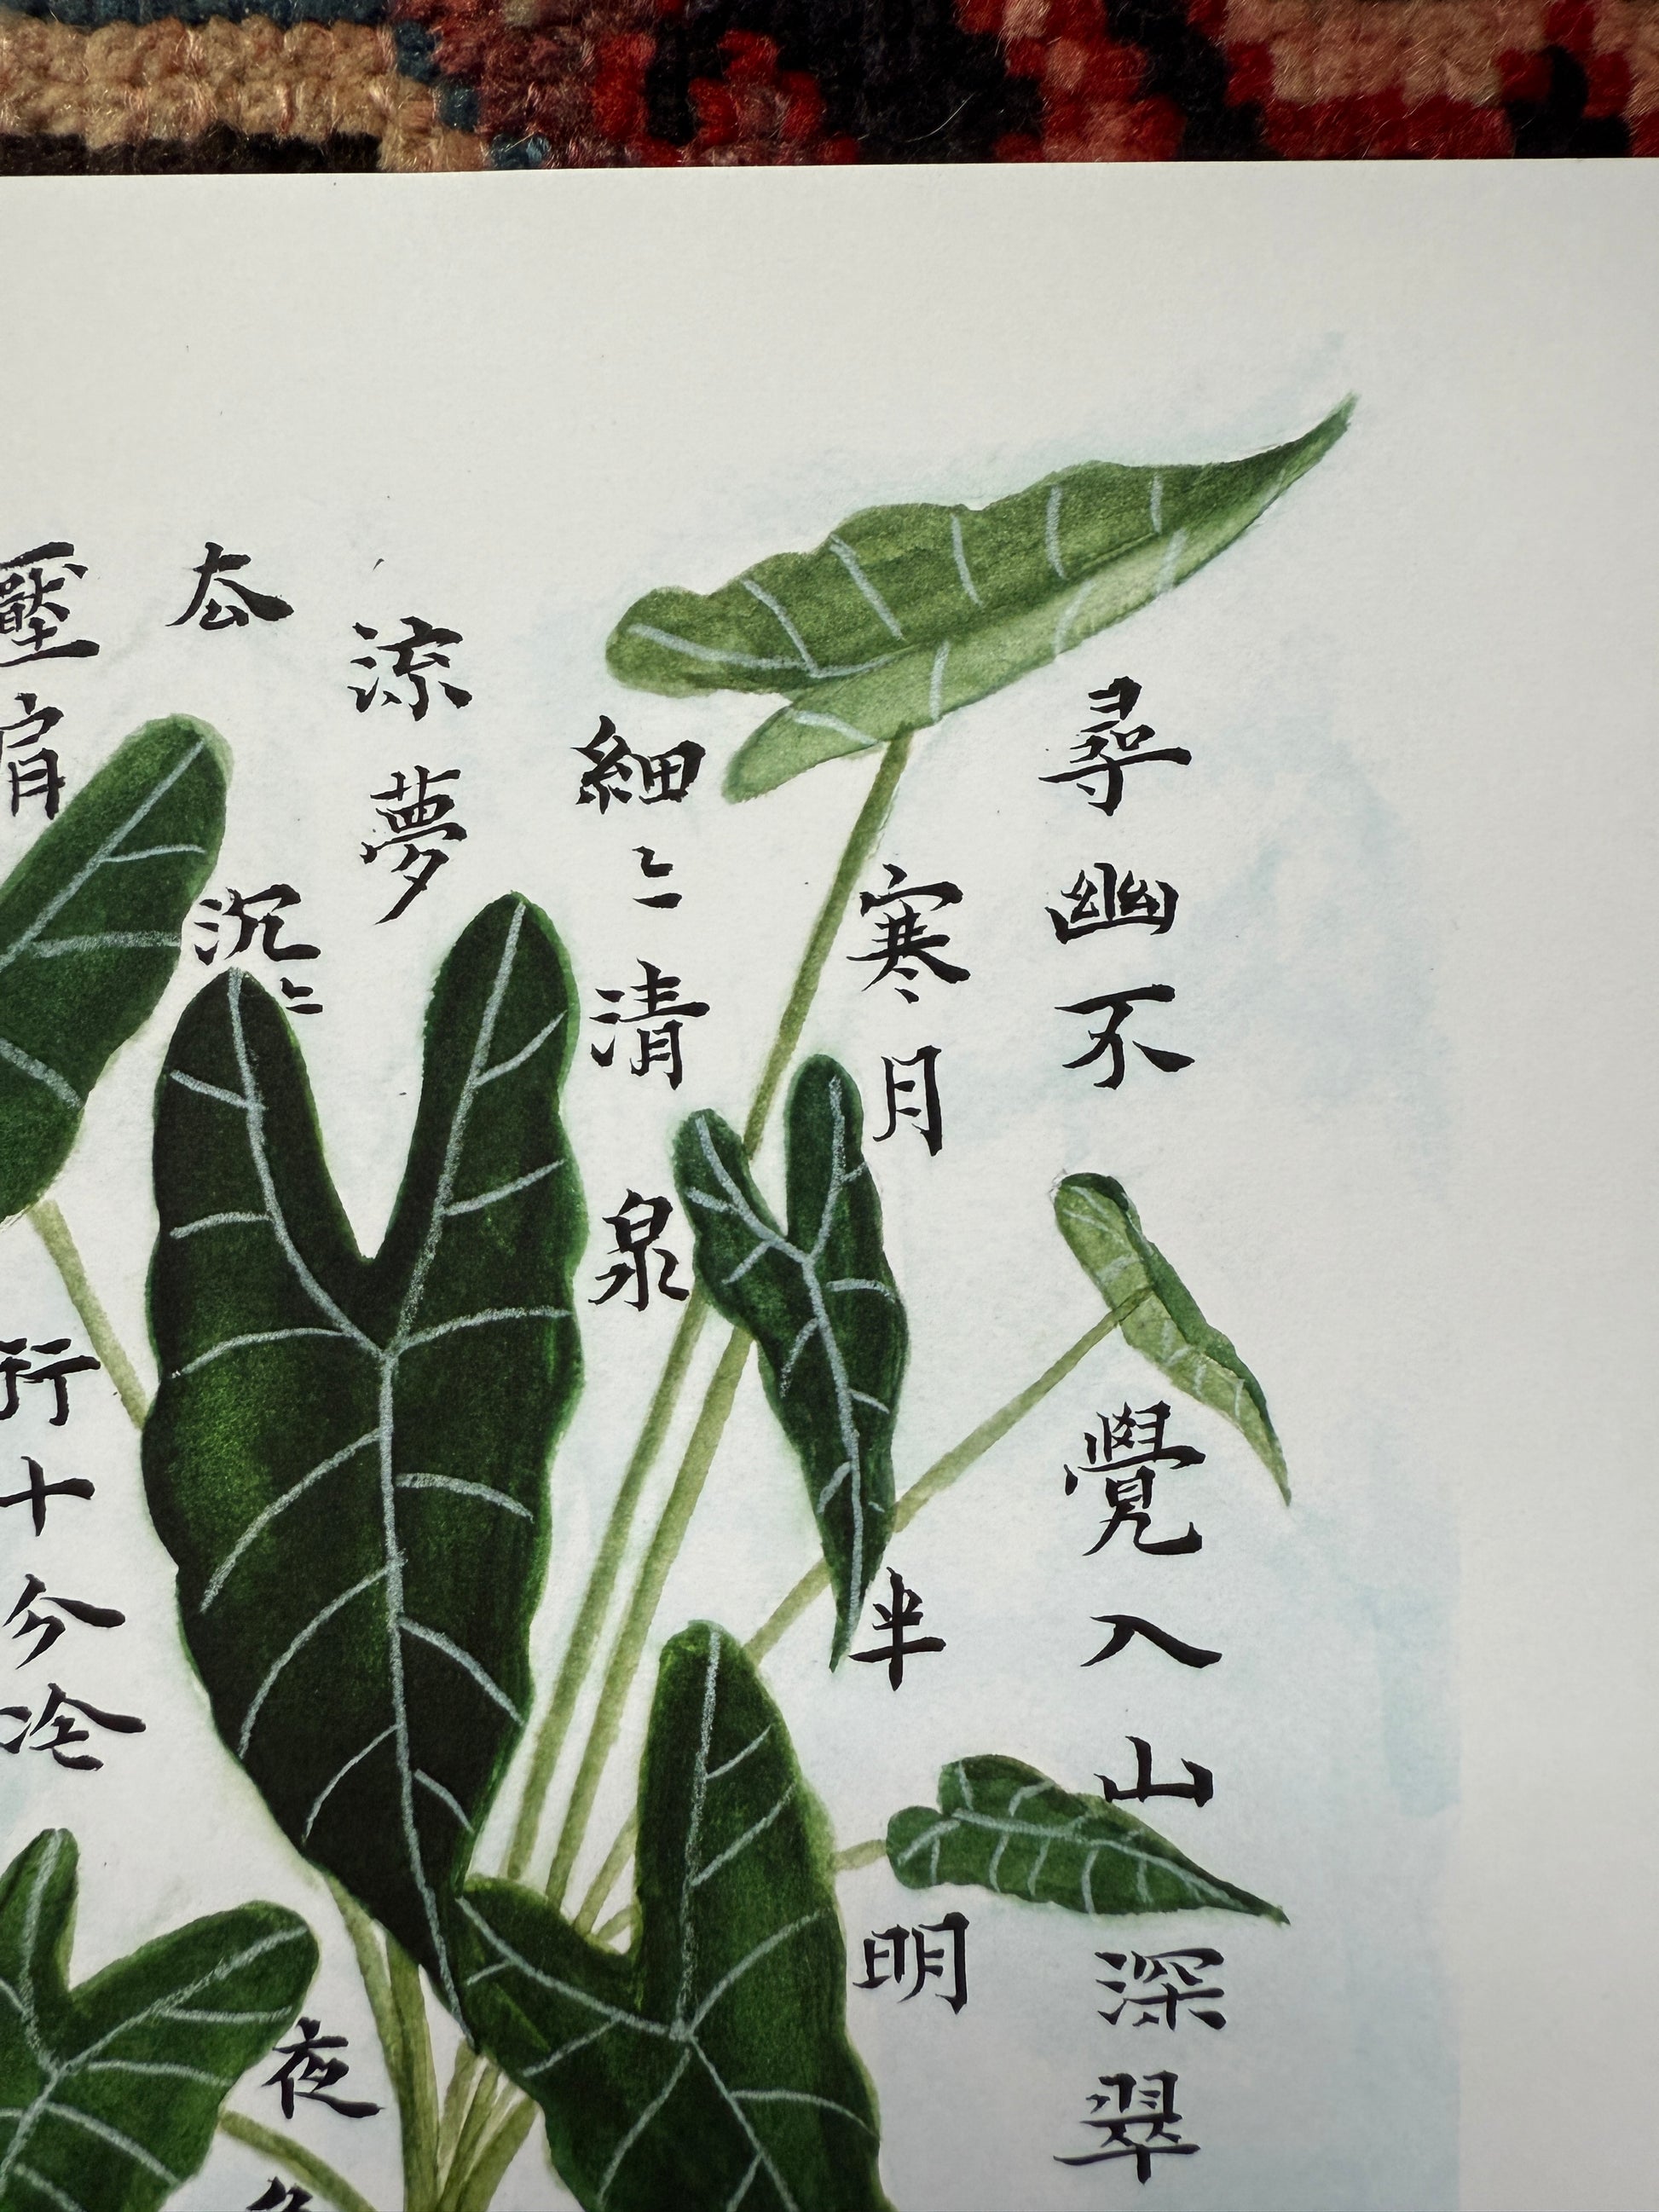 尋幽不覺入山深翠
寒月半明
細〻清泉
流夢
厺沉〻夜
壓肩行十分冷